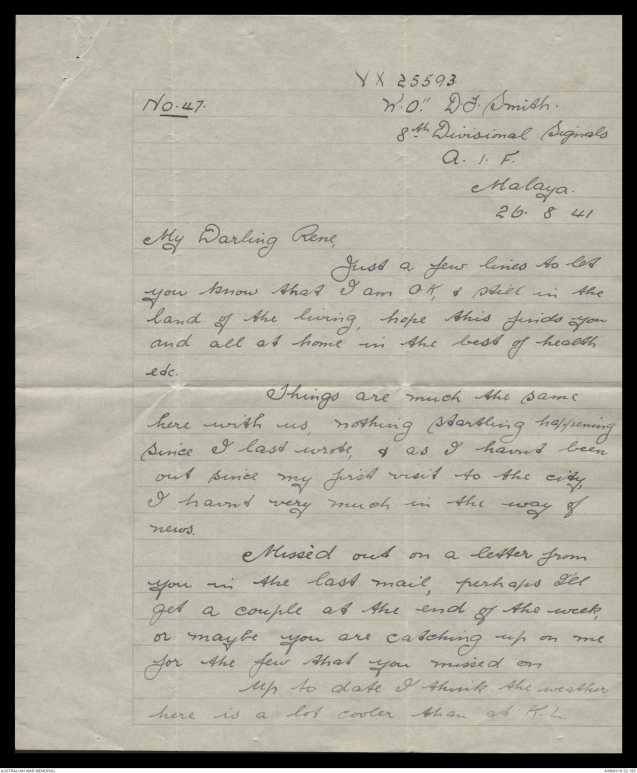 VX 25593
No. 47. W.O." D.J. Smith.
8th Divisional Signals
A. I. F.
Malaya.
26. 8 41
My Darling Rene,
Just a few lines to let
you know that I am OK, & still in the
land of the living, hope this finds you
and all at home in the best of health
etc.
Things are much the same
here with us, nothing startling happening
since I last wrote, & as I havnt been
out since my first visit to the city,
I havnt very much in the way of
news.
Missed out on a letter from
you in the last mail, perhaps I'll
get a couple at the end of the week,
or maybe you are catching up on me
for the few that you missed on
Up to date I think the weather
here is a lot cooler than at K.L.
AUSTRALIAN WAR MEMORIAL